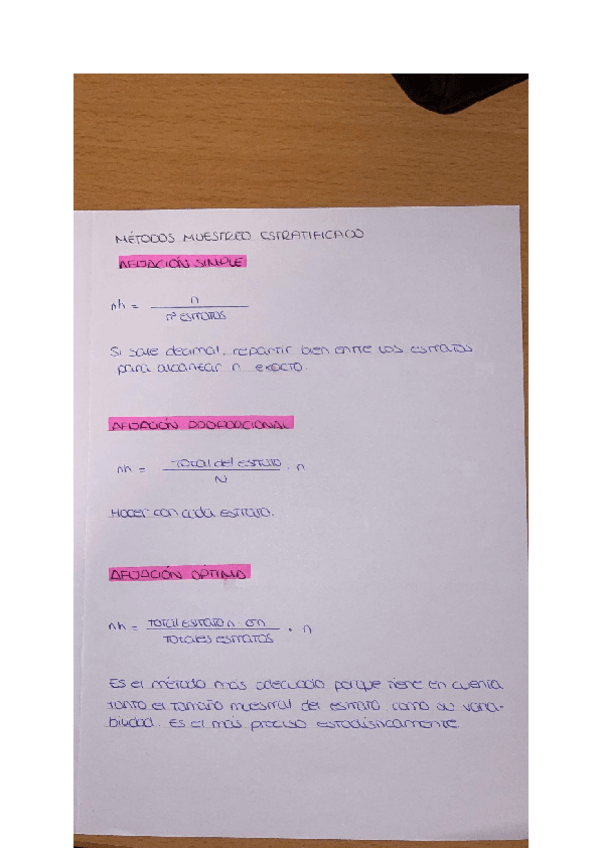 MÉTODOS MUESTREO ESTRATIFICADO
AFIJACIÓN SIMPLE
nh = n / nº ESTRATOS
Si sale decimal, repartir bien entre los estratos
para alcanzar n exacto.
AFIJACIÓN PROPORCIONAL
nh = Total del estrato / N · n
Hacer con cada estrato.
AFIJACIÓN ÓPTIMA
nh = Total estrato n · σn / Totales estratos · n
Es el método más adecuado porque tiene en cuenta
tanto el tamaño muestral del estrato como su varia-
bilidad. Es el más preciso estadísticamente.